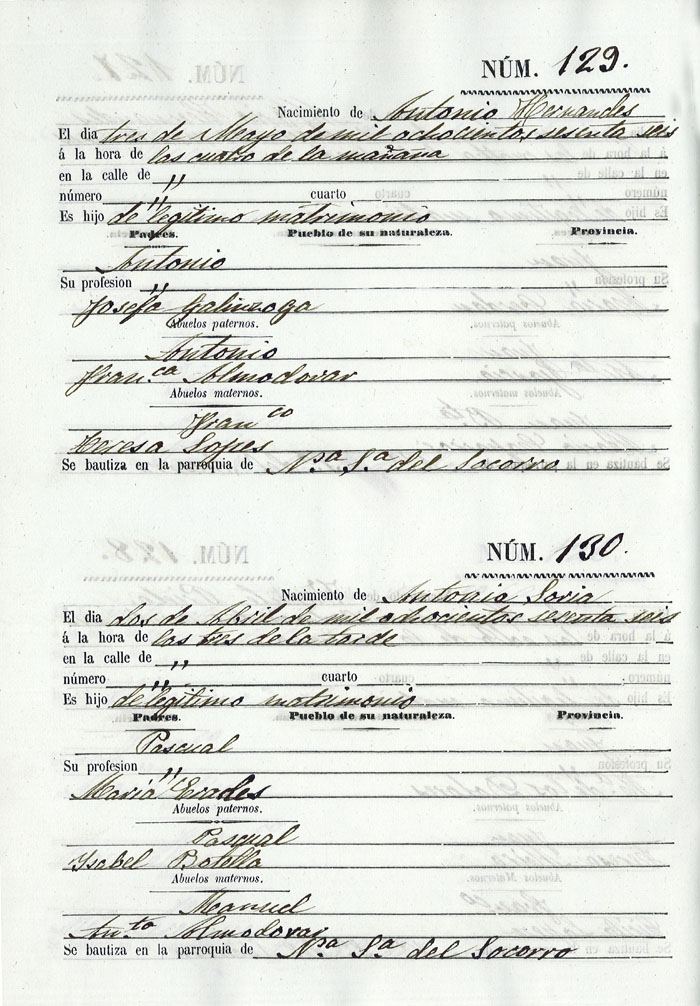 NÚM. 129.
Nacimiento de Antonio Hernandes
El dia tres de Mayo de mil ochocientos sesenta seis
á la hora de las cuatro de la mañana
en la calle de "
número " cuarto
Es hijo de legitimo matrimonio
Padres. Pueblo de su naturaleza. Provincia.
Antonio
Su profesion "
Josefa Galinzoga
Abuelos paternos.
Antonio
Fran.ca Almodovar
Abuelos maternos.
Fran co
Teresa Lopes
Se bautiza en la parroquia de Nª Sª del Socorro
NÚM. 130.
Nacimiento de Antonia Soria
El dia dos de Abril de mil ochocientos sesenta seis
á la hora de las tres de la tarde
en la calle de "
número " cuarto
Es hijo de legitimo matrimonio
Padres. Pueblo de su naturaleza. Provincia.
Pascual
Su profesion "
Maria Erades
Abuelos paternos.
Pasqual
Ysabel Botella
Abuelos maternos.
Manuel
An.ta Almodovar
Se bautiza en la parroquia de Nª Sª del Socorro